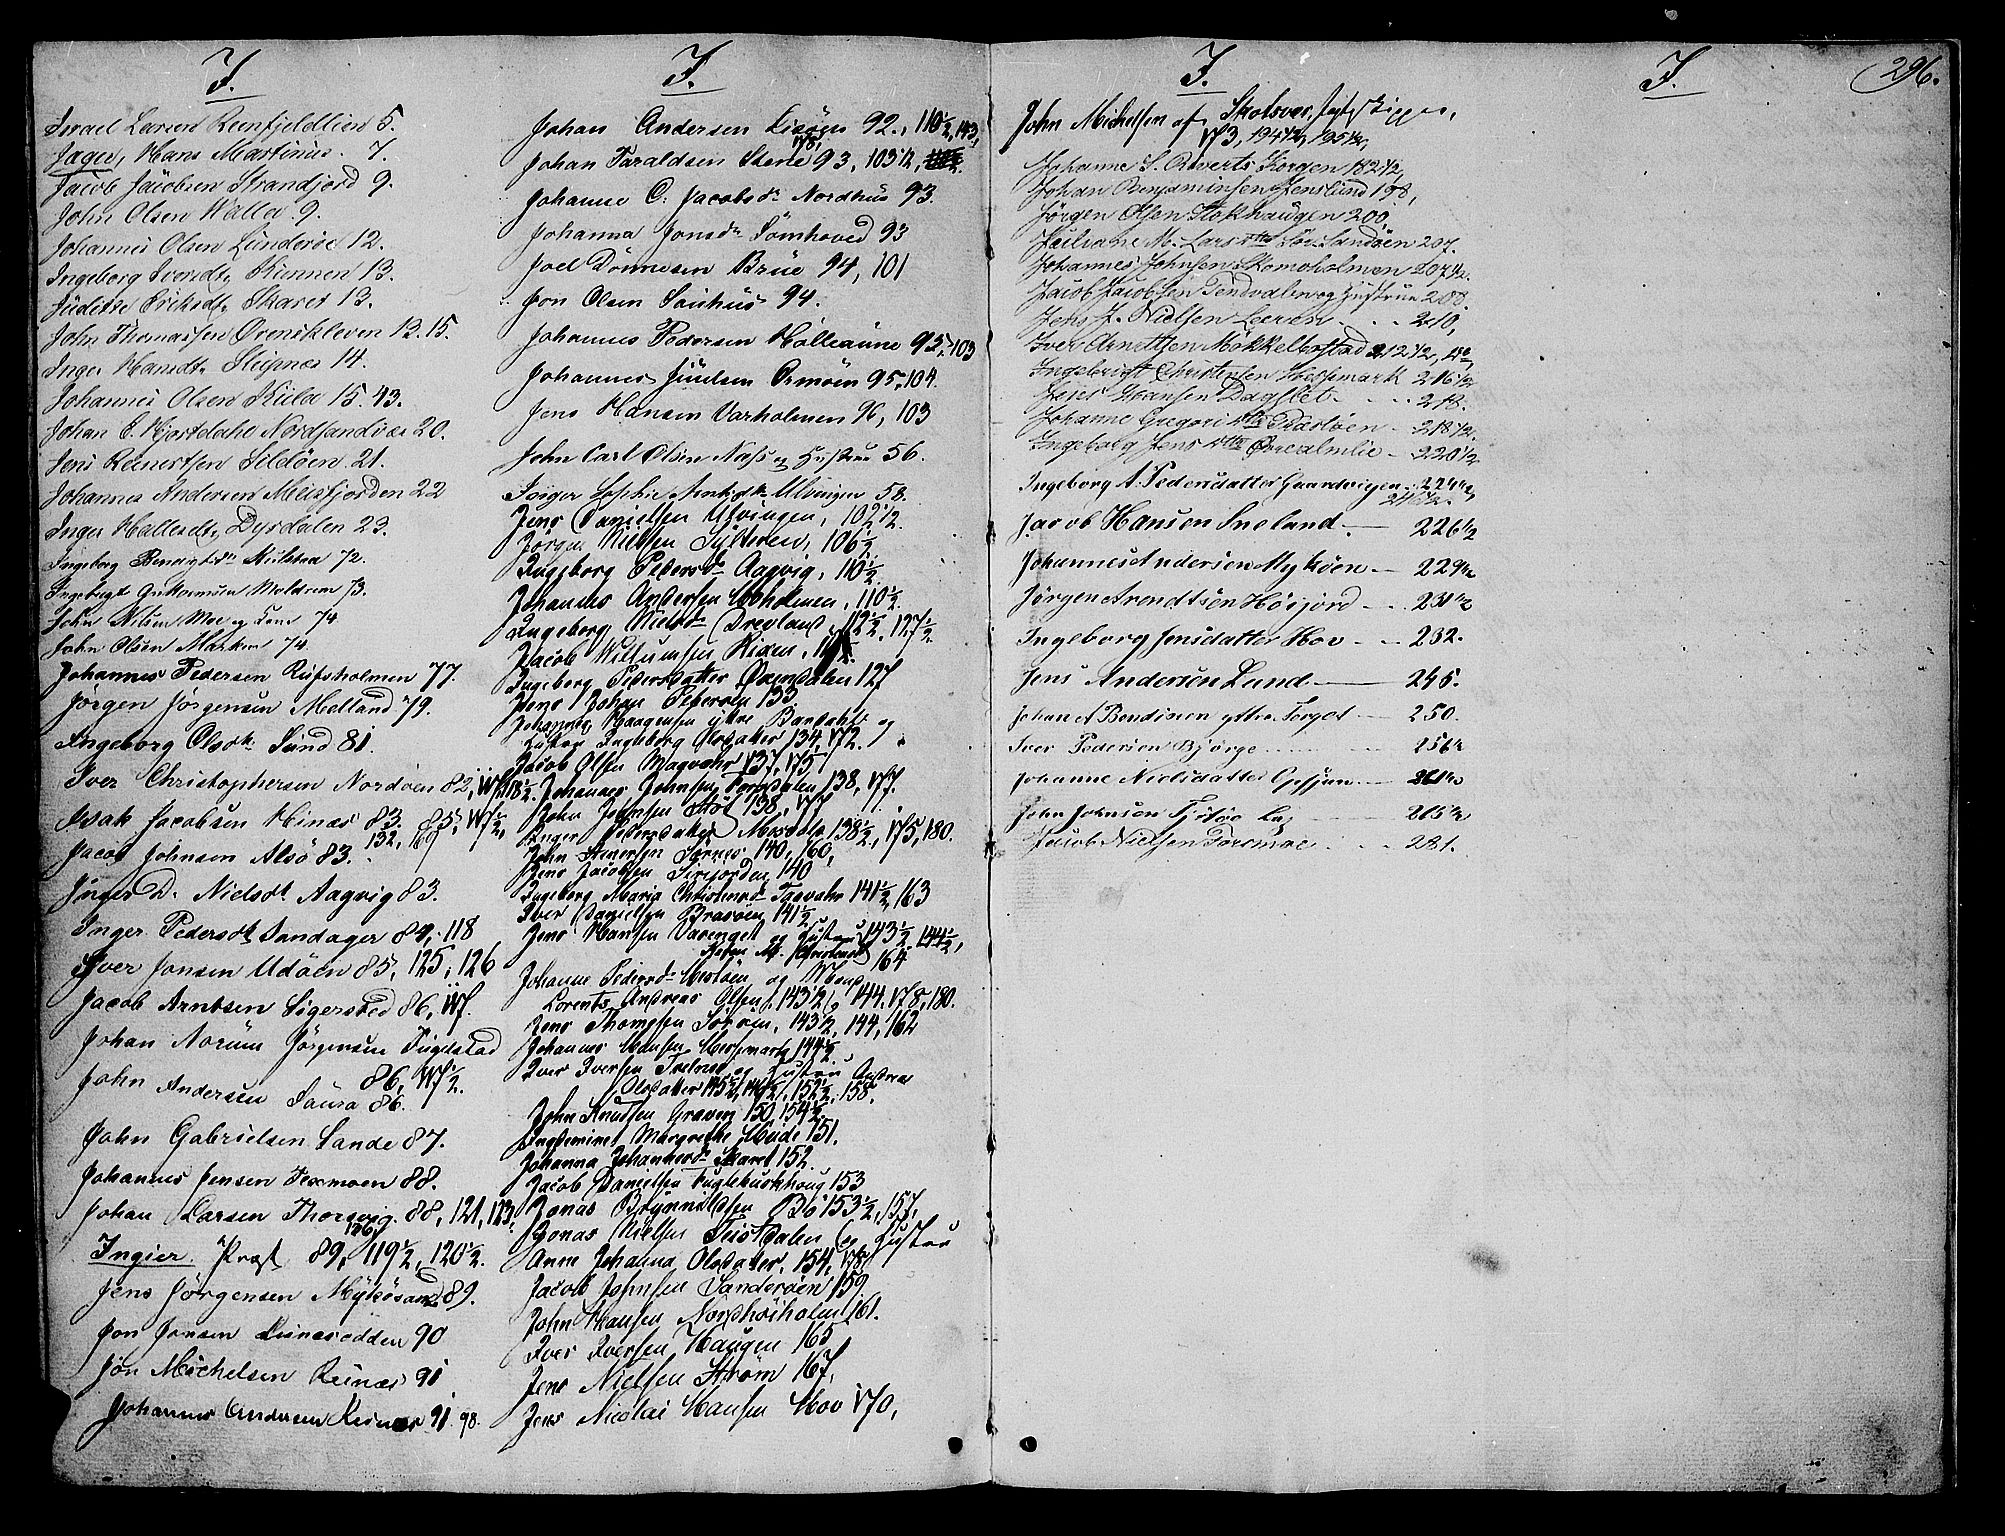 J.
Israel Larsen Reenfjeldlien 5.
Jæger, Hans Martinus. 7.
Jacob Jacobsen Strandjord 9.
John Olsen Walla 9.
Johannes Olsen Lunderøe 12.
Ingeborg Iversdt. Kinnen 13.
Judithe Eriksdt. Skaret 13.
John Thomassen Ørenskleven 13. 15.
Inger Hansdt. Stupnes 14.
Johannes Olsen Kielø 15. 43.
Johan E. Hjortdahl Nordsandvær 20.
Jens Reinertsen Sildøen 21.
Johannes Andersen Meisfjorden 22
Inger Hallesdt. Dyrdalen 23.
Ingeborg 72.
Ingebrigt Guttormsen Meldrem 73.
John Nilsen Moe og Kone 74
John Olsen Marken 74.
Johannes Pedersen Rufsholmen 77.
Jörgen Jörgensen Melland 79.
Ingeborg Olsdt. Sund 81.
Iver Christophersen Nordøen 82, 117, 118½.
Isak Jacobsen Hinæs 83, 85, 117½,
132, 169
Jacob Johnsen Alsö 83.
Inger D. Nielsdt Aagvig 83.
Inger Pedersdt Sandager 84, 118
Iver Jonsen Udöen 85, 125, 126
Jacob Arntsen Sigersted 86, 117.
Johan Norum Jörgensen Fugelstad
86, 117½.
John Andersen Saura 86.
John Gabrielsen Sande 87.
Johannes Jensen Texmoen 88.
Johan Larsen Thorsvig. 88, 121, 123,
126,
Ingier. Præst 89, 119½, 120½.
Jens Jörgensen Mykösand 89.
Jon Jonsen Reinesodden 90
Jon Michelsen Reinæs 91
Johannes Andersen Reinæs 91. 98.
J.
Johan Andersen Lisöen 92., 110½, 143,
178,
Johan Taraldsen Stene 93, 103½,
Johanne C. Jacobsdr. Nordhus 93.
Johanna Jonsdr Sömhoved 93
Joel Dönnesen Brue 94, 101
Jon Olsen Sauhus 94.
Johannes Pedersen Halleaune 95, 103
Johannes Juulsen Ormöen 95, 104.
Jens Hansen Varholmen 96, 103
John Carl Olsen Næss og Hustrue 56.
Inger Sophie Arntsdr. Ulvingen 58.
Jens Danielsen Ulvingen, 102½.
Jörgen Nielsen Sylteren, 106½
Ingeborg Pedersdr Aagvig, 110½.
Johannes Andersen Moholmen, 110½.
Ingeborg Nielsdr Drevland, 112½. 127½.
Jacob Willumsen Risen,
Ingeborg Pedersdatter Ørensdalen 127
Jens Johan Petersen 133
Johannes Haagensen ytre Bardahl og
Hustru Ingeborg Olsdatter 134, 172.
Jacob Olsen Magvahr 137, 175
Johannes Johnsen Forsdalen 138, 177.
John Johnsen Stöt 138, 177.
Inger Pedersdatter Mosdalen 138½, 175, 180.
John Steversen Sörnes 140, 160,
Jens Jacobsen Leirfjorden 140
Ingeborg Maria Christensd Tagvahr 141½, 163
Iver Danielsen Brasöen 141½
Jens Hansen Varenget og Hustru 143½, 144½,
Karen M. Christensdr 164.
Johanne Pedersdr Mosöen og Mand
Lorents Andreas Olsen, 143½, 144, 178, 180.
Jens Thomesen Söröen, 143½, 144, 162
Johannes Hansen Hersmark 144½.
Iver Iversen Trælnes og Hustru Andrea
Olsdatter 145½, 146½, 152½, 158.
John Knudsen Graven 150, 154½
Ingeminne Margrethe Hude 151.
Johanna Johannesdr Skaret 152
Jacob Danielsen Fugleburkhoug 153
Jonas Brynnildsen Bö 153½, 157,
Jonas Nielsen Tiosdalen og Hustru
Anne Johanna Olsdatter, 154, 178
Jacob Johnsen Sanderöen 159
John Hansen Nordhöiholm 161.
Iver Iversen Haugen 165
Jens Nielsen Ström 167,
Jens Nicolai Hansen Hov 170,
J.
John Michelsen af Skotsvær, Jægtskipper,
173, 194½, 195½,
Johanne S. Qverts Korgen 182½,
Johan Benjaminsen Henslund 198,
Jörgen Olsen Stokhaugen 200,
Juliane M. Larsdtter Sör-Sandöen 207.
Johannes Johnsen Skomoholmen 207½.
Jacob Jacobsen Tendvalen og Hustrue 208.
Jens J. Nielsen Leeren . . . . 210,
Iver Arnettsen Möklebostad 212½,
Ingebrigt Christensen Hersemark 216½
Jens Hansen Dagslet . . . 218.
Johanne Gregori dtter Træsløen . 218½.
Ingeborg Jens dtter Ovrealmlie - 220½
Ingeborg A. Pedersdatter Gaardvigen . . 224½,
246½.
Jacob Hansen Sneland — 226½
Johannes Andersen Myköen — 229½
Jörgen Arendtsen Høgjord — 231½
Ingeborg Jensdatter Hov — 232.
Jens Andersen Lund — 245.
Johan A Bendixen yttre Torget — 250.
Iver Pedersen Bjørge 256½
Johanne Nielsdatter Gessjøn — 261½
John Johnsen Tjötöe Lej — 265½
Jacob Nielsen Forsmoe . . . 281.
J.
296.